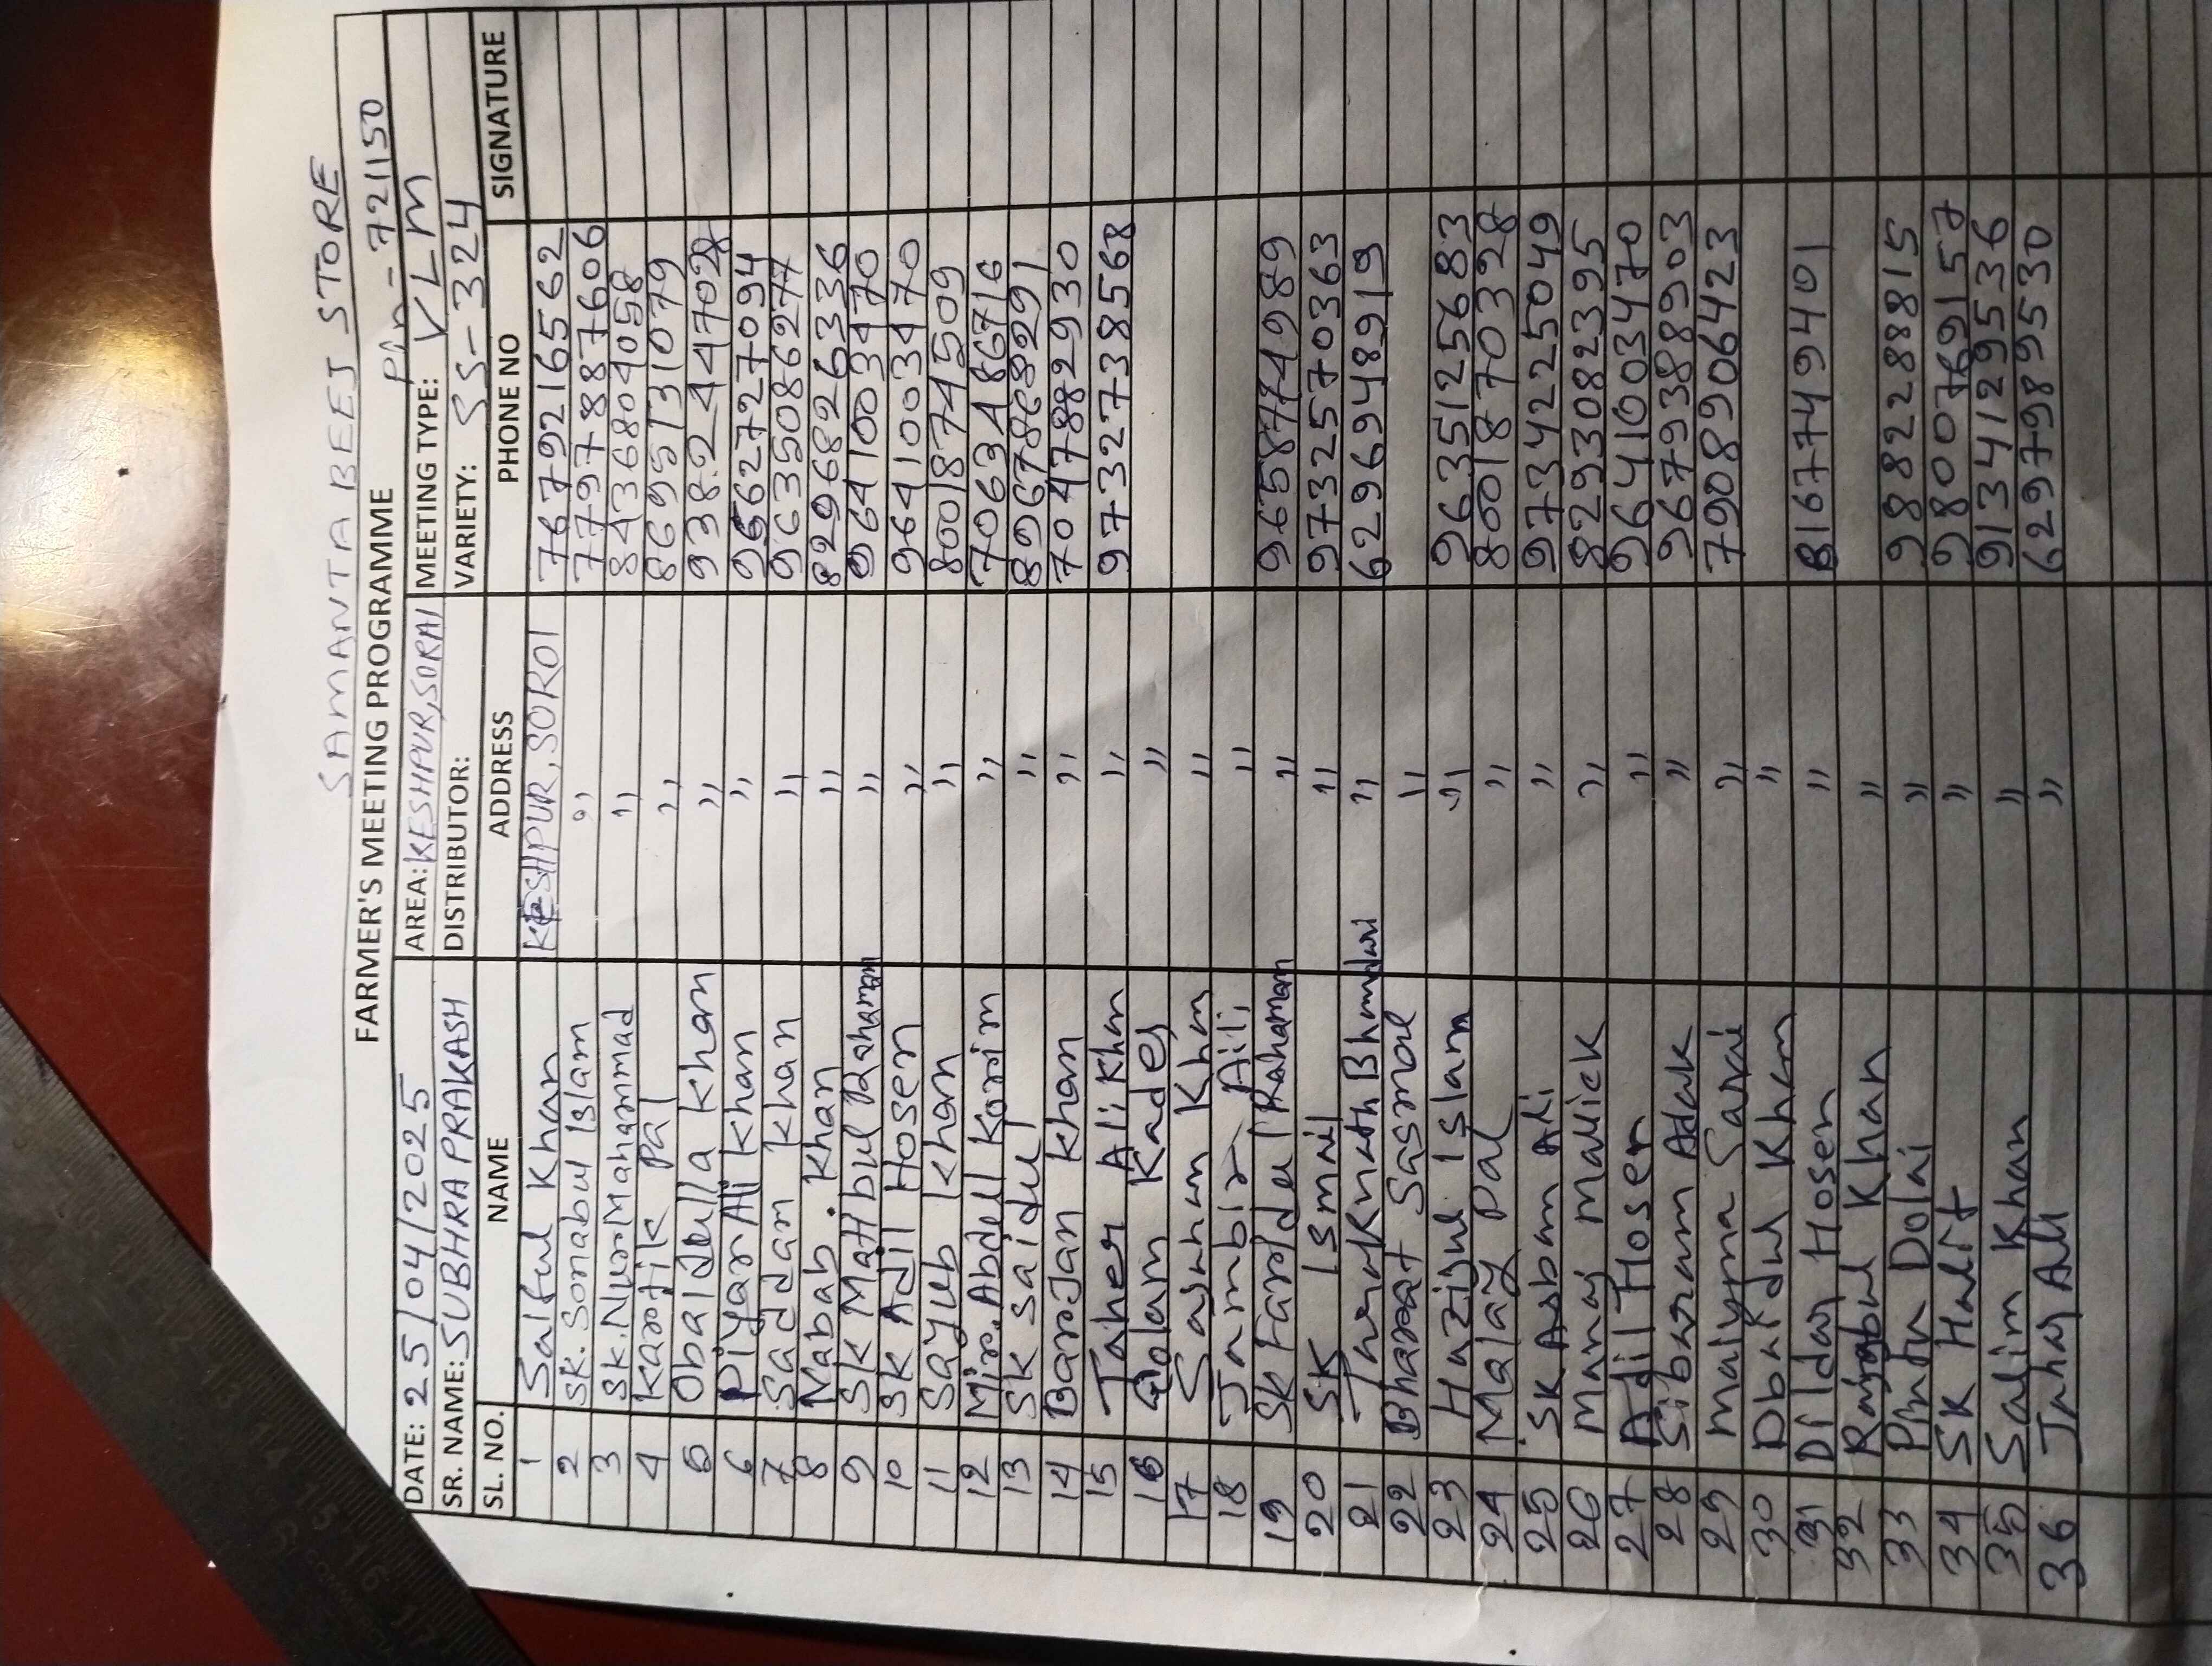 SAMANTA BEEJ STORE
FARMER'S MEETING PROGRAMME Pin - 721150
DATE: 25/04/2025 AREA: KESHPUR, SORAI MEETING TYPE: VLM
SR. NAME: SUBHRA PRAKASH DISTRIBUTOR: VARIETY: SS-324
SL. NO. NAME ADDRESS PHONE NO SIGNATURE
1 Saiful Khan KESHPUR, SOROI 7679216562
2 SK. Sonabul Islam " 7797887606
3 SK. Nur Mahammad " 8436804058
4 Karotik Pal " 8695731079
5 Obaidulla Khan " 9382447028
6 Piyar Ali Khan " 9562727094
7 Saddan Khan " 9635086277
8 Nabab. Khan " 8296826336
9 SK Mathbul Rahaman " 9641003470
10 SK Adil Hosen " 9641003470
11 Sayub Khan " 8001874509
12 Mir. Abdul Korim " 7063486716
13 SK Saidul " 8967868291
14 BaroJan Khan " 7047882930
15 Taher Ali Khan " 9732738568
16 Golam Kader "
17 Sajahan Khan "
18 Jambir Aili "
19 SK Faridul Rahaman " 9658774989
20 SK Ismail " 9732570363
21 Bhunulwi " 6296948919
22 Bharat Sasmal "
23 Hazijul Islam " 9635125683
24 Malay Pal " 8001870328
25 SK Asban Ali " 9734225049
26 Manaj Mallick " 8293082395
27 Adil Hosen " 9641003470
28 Sibaram Adak " 9679388903
29 Malyna Sarai " 7908906423
30 Dbakdul Khan "
31 Dildar Hosen " 8167749401
32 Khan "
33 Pintu Dolai " 9882288815
34 SK Halit " 9800769157
35 Salim Khan " 9134129536
36 Jahar Ali " 6297989530